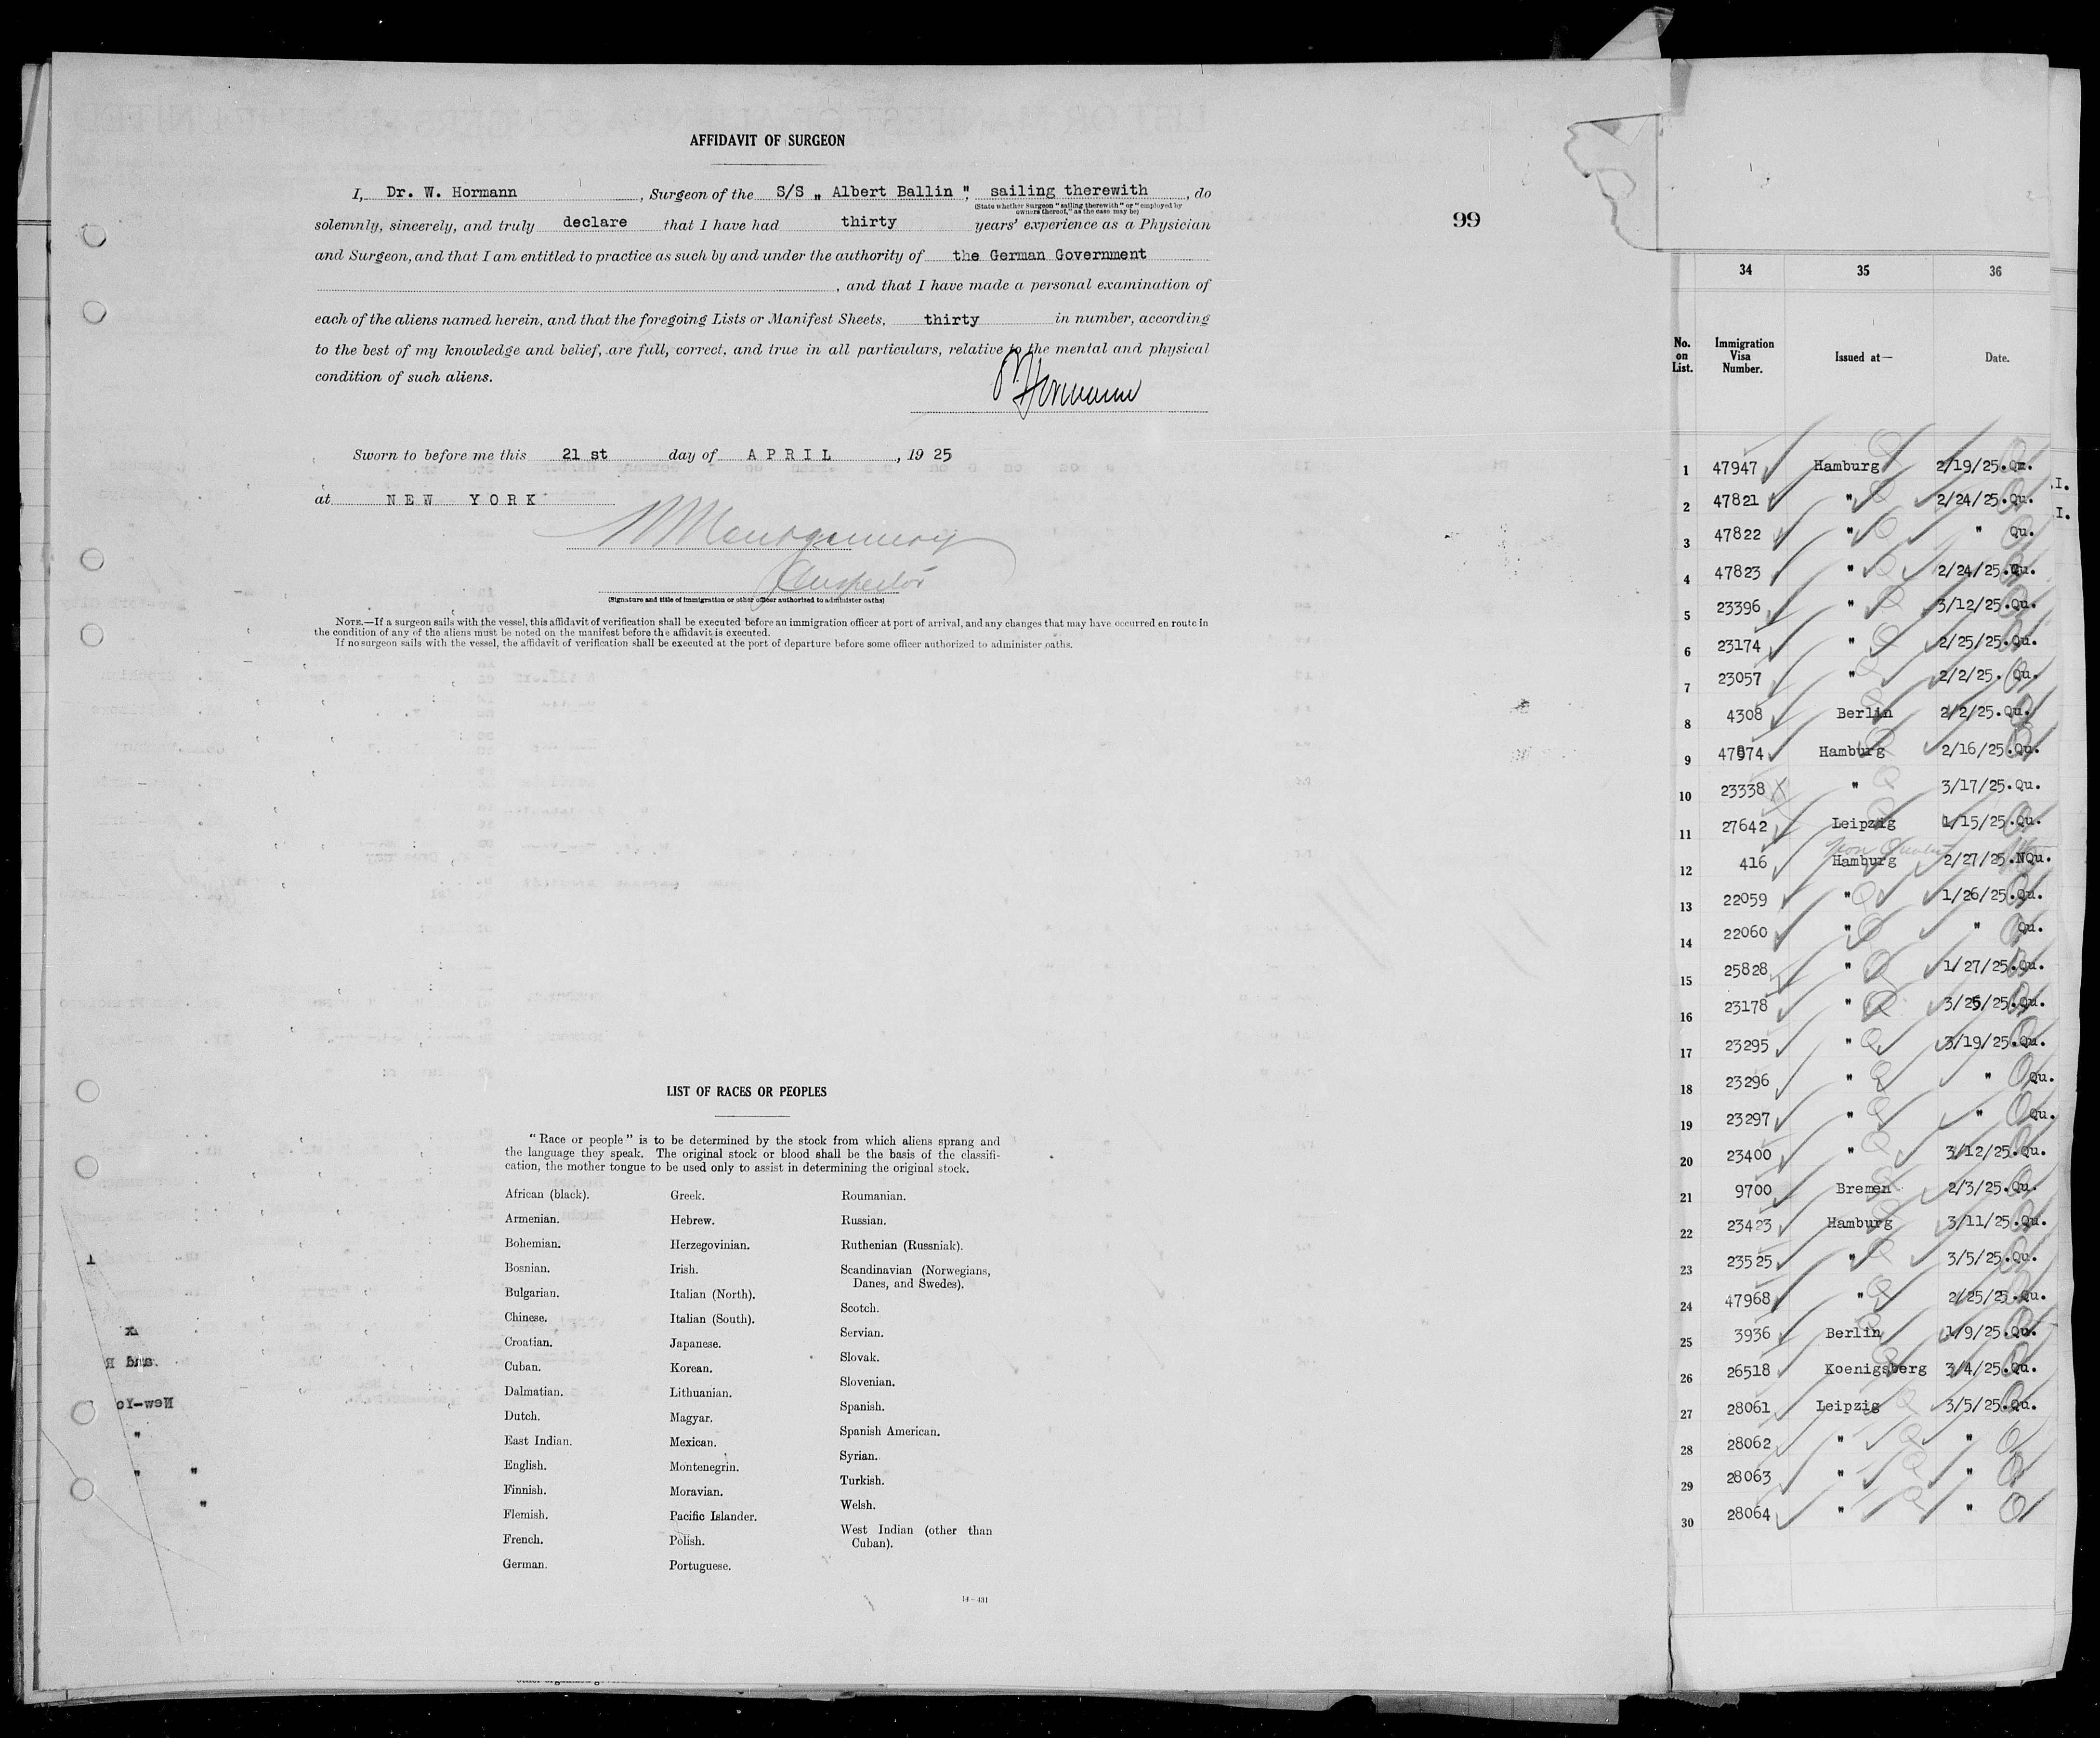 AFFIDAVIT OF SURGEON
I, Dr. W. Hormann, Surgeon of the S/S „ Albert Ballin ", sailing therewith, do
(State whether Surgeon "sailing therewith" or "employed by
owners thereof," as the case may be)
solemnly, sincerely, and truly declare that I have had thirty years' experience as a Physician
and Surgeon, and that I am entitled to practice as such by and under the authority of the German Government
, and that I have made a personal examination of
each of the aliens named herein, and that the foregoing Lists or Manifest Sheets, thirty in number, according
to the best of my knowledge and belief, are full, correct, and true in all particulars, relative to the mental and physical
condition of such aliens.
Hormann
Sworn to before me this 21 st day of APRIL, 19 25
at NEW YORK
Montgomery
Inspector
(Signature and title of immigration or other officer authorized to administer oaths)
NOTE.—If a surgeon sails with the vessel, this affidavit of verification shall be executed before an immigration officer at port of arrival, and any changes that may have occurred en route in
the condition of any of the aliens must be noted on the manifest before the affidavit is executed.
If no surgeon sails with the vessel, the affidavit of verification shall be executed at the port of departure before some officer authorized to administer oaths.
99
LIST OF RACES OR PEOPLES
"Race or people" is to be determined by the stock from which aliens sprang and
the language they speak. The original stock or blood shall be the basis of the classifi-
cation, the mother tongue to be used only to assist in determining the original stock.
African (black).
Armenian.
Bohemian.
Bosnian.
Bulgarian.
Chinese.
Croatian.
Cuban.
Dalmatian.
Dutch.
East Indian.
English.
Finnish.
Flemish.
French.
German.
Greek.
Hebrew.
Herzegovinian.
Irish.
Italian (North).
Italian (South).
Japanese.
Korean.
Lithuanian.
Magyar.
Mexican.
Montenegrin.
Moravian.
Pacific Islander.
Polish.
Portuguese.
Roumanian.
Russian.
Ruthenian (Russniak).
Scandinavian (Norwegians,
Danes, and Swedes).
Scotch.
Servian.
Slovak.
Slovenian.
Spanish.
Spanish American.
Syrian.
Turkish.
Welsh.
West Indian (other than
Cuban).
14—431
34 35 36
No. on List. Immigration Visa Number. Issued at— Date.
1 47947 Hamburg 2/19/25.Qu.
2 47821 " 2/24/25.Qu.
3 47822 " " Qu.
4 47823 " 2/24/25.Qu.
5 23396 " 3/12/25.Qu.
6 23174 " 2/25/25.Qu.
7 23057 " 2/2/25. Qu.
8 4308 Berlin 2/2/25.Qu.
9 47974 Hamburg 2/16/25.Qu.
10 23338 X " 3/17/25.Qu.
11 27642 Leipzig 1/15/25.Qu.
Non Quota
12 416 Hamburg 2/27/25.NQu.
13 22059 " 1/26/25.Qu.
14 22060 " " Qu.
15 25828 " 1/27/25.Qu.
16 23178 " 3/25/25.Qu.
17 23295 " 3/19/25.Qu.
18 23296 " " Qu.
19 23297 " " Qu.
20 23400 " 3/12/25.Qu.
21 9700 Bremen 2/3/25.Qu.
22 23423 Hamburg 3/11/25.Qu.
23 23525 " 3/5/25.Qu.
24 47968 " 2/25/25.Qu.
25 3936 Berlin 1/9/25.Qu.
26 26518 Koenigsberg 3/4/25.Qu.
27 28061 Leipzig 3/5/25.Qu.
28 28062 " "
29 28063 " "
30 28064 " "